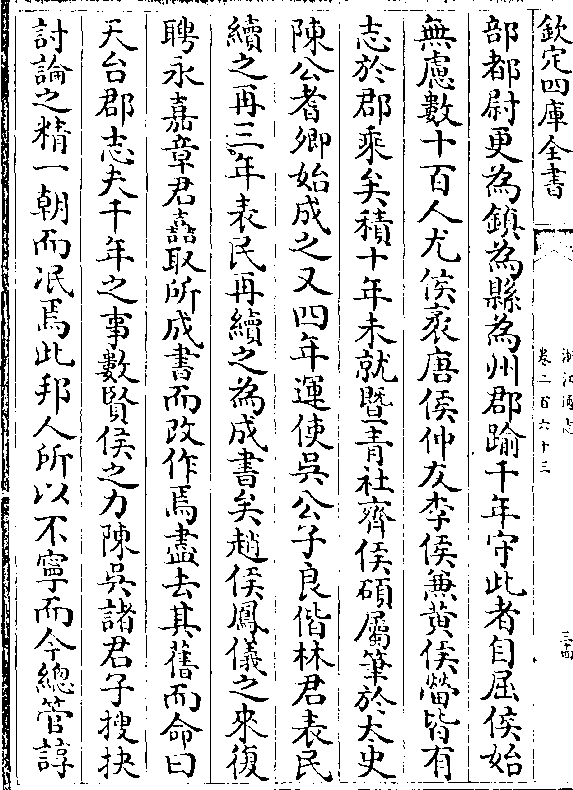 欽定四庫全書
浙江通志
卷二百六十三
三十四
部都尉更為鎮為縣為州郡踰千年守此者自屈侯始
無慮數十百人尤侯袤唐侯仲友李侯兼黃侯㽦皆有
志於郡乘矣積十年未就暨青社齊侯碩屬筆於太史
陳公耆卿始成之又四年運使吳公子良偕林君表民
續之再三年表民再續之為成書矣趙侯鳳儀之來復
聘永嘉章君嚞取所成書而改作焉盡去其舊而命曰
天台郡志夫千年之事數賢侯之力陳吳諸君子搜抉
討論之精一朝而冺焉此邦人所以不寧而今總管諄